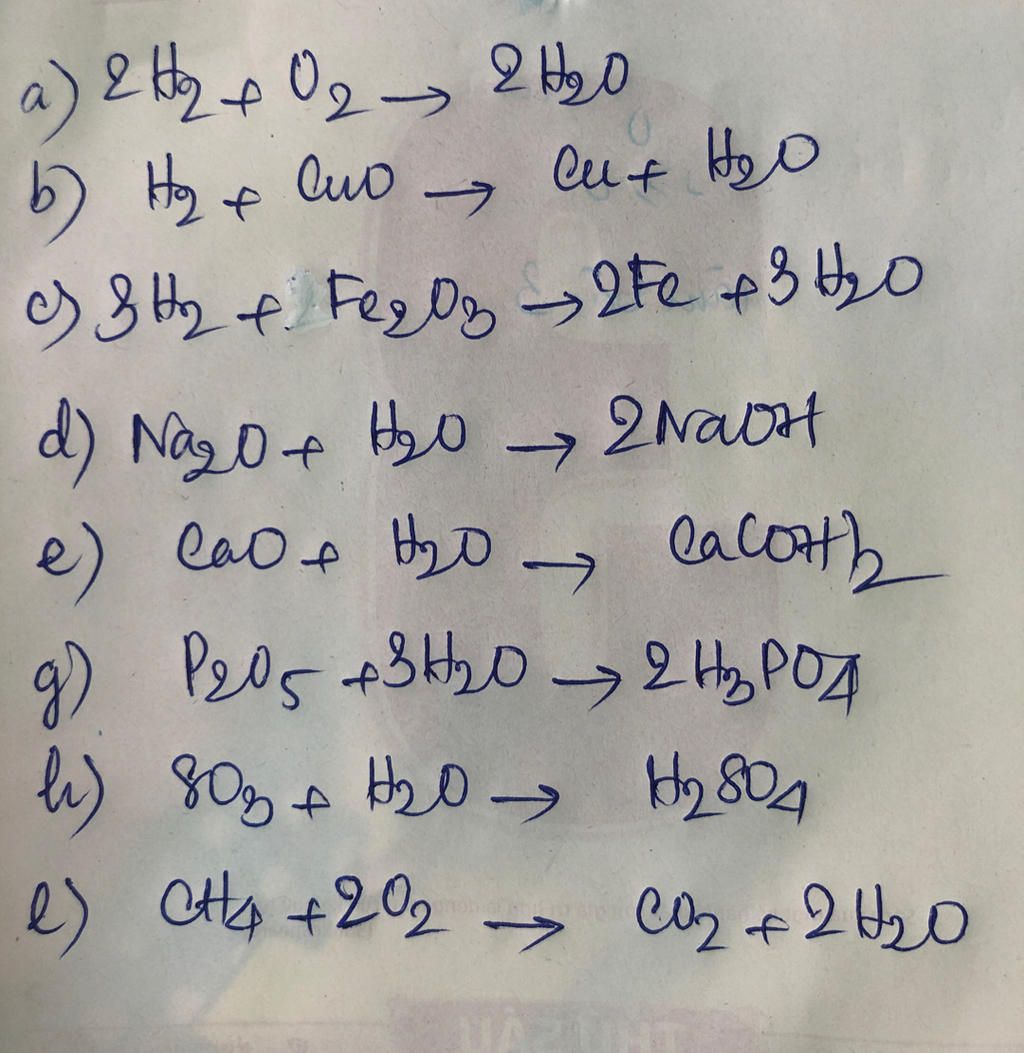 a) 2H₂ + O₂ → 2H₂O
b) H₂ + CuO → Cu + H₂O
c) 3H₂ + Fe₂O₃ → 2Fe + 3H₂O
d) Na₂O + H₂O → 2NaOH
e) CaO + H₂O → Ca(OH)₂
g) P₂O₅ + 3H₂O → 2H₃PO₄
h) SO₃ + H₂O → H₂SO₄
l) CH₄ + 2O₂ → CO₂ + 2H₂O